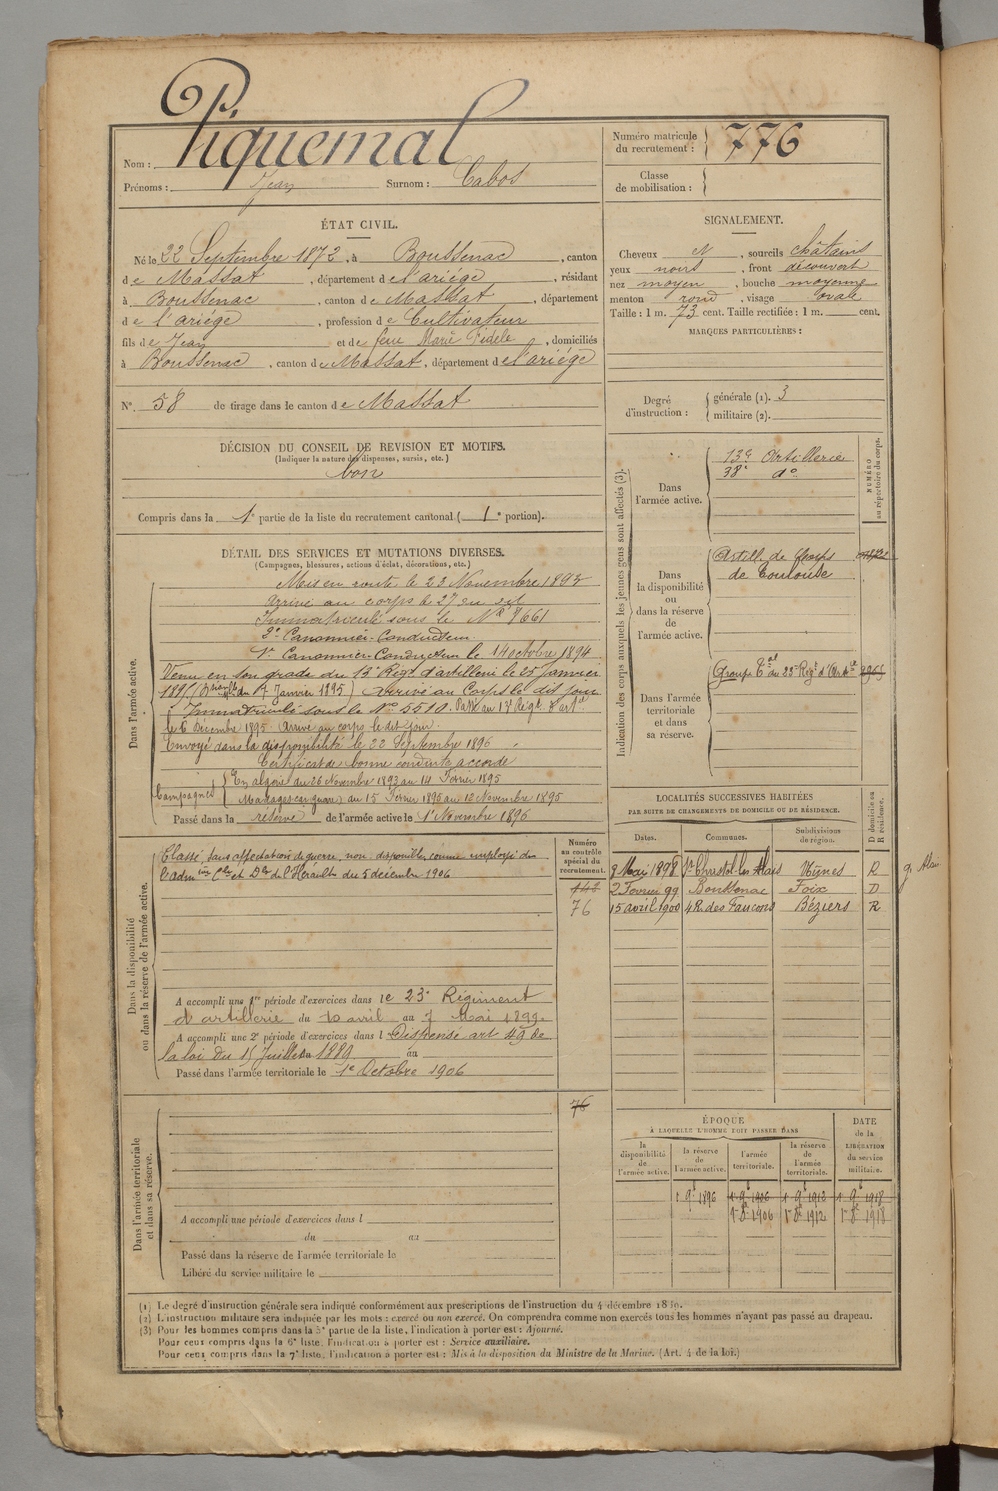 Nom : Piquemal
Prénoms : Jean Surnom : Cabos
Numéro matricule du recrutement : 776
Classe de mobilisation :
ÉTAT CIVIL.
Né le 22 Septembre 1872, à Boussenac, canton
de Massat, département de l'ariége, résidant
à Boussenac, canton de Massat, département
de l'ariége, profession de Cultivateur
fils de Jean et de feue Marie Fidele, domiciliés
à Boussenac, canton de Massat, département de l'ariége
N° 58 de tirage dans le canton de Massat
SIGNALEMENT.
Cheveux N, sourcils châtains
yeux noirs, front découvert
nez moyen, bouche moyenne
menton rond, visage ovale
Taille : 1 m. 73 cent. Taille rectifiée : 1 m. cent.
MARQUES PARTICULIÈRES :
Degré d'instruction :
générale (1). 3
militaire (2).
DÉCISION DU CONSEIL DE REVISION ET MOTIFS.
(Indiquer la nature des dispenses, sursis, etc.)
bon
Compris dans la 1e partie de la liste du recrutement cantonal (1e portion).
DÉTAIL DES SERVICES ET MUTATIONS DIVERSES.
(Campagnes, blessures, actions d'éclat, décorations, etc.)
Dans l'armée active.
Mis en route le 23 Novembre 1893
Arrivé au corps le 27 du dit
Immatriculé sous le N° 7661
2e Canonnier-Conducteur
1er Canonnier-Conducteur le 14 octobre 1894
Venu en son grade du 13e Régt d'artillerie le 25 janvier
1895 du 17 Janvier 1895) Arrivé au Corps le dit jour
Immatriculé sous le No 5510. Passé au 13e Régt d'artie
le 6 Décembre 1895. Arrivé au corps le dit jour.
Envoyé dans la disponibilité le 22 Septembre 1896
Certificat de bonne conduite accordé
Campagnes
En algérie du 26 Novembre 1893 au 14 Fevrier 1895
Madagascar (guerre) du 15 Fevrier 1895 au 12 Novembre 1895
Passé dans la réserve de l'armée active le 1er Novembre 1896
Indication des corps auxquels les jeunes gens sont affectés (3).
NUMÉRO au répertoire du corps.
Dans l'armée active.
13e Artillerie
38e do
Dans la disponibilité ou dans la réserve de l'armée active.
Artill. de Corps
de Toulouse
Dans l'armée territoriale et dans sa réserve.
Groupe Tal du 23e Régt d'Artie
Dans la disponibilité ou dans la réserve de l'armée active.
Numéro au contrôle spécial du recrutement.
Classé sans affectation de guerre, non disponible, comme employé de
l'admion Cle et Dle de l'Hérault du 5 décembre 1906
76
A accompli une 1re période d'exercices dans le 23e Régiment
d'artillerie du 10 avril au 7 Mai 1899.
A accompli une 2e période d'exercices dans l Dispensé art 49 de
la loi du 15 Juillet 1889 au
Passé dans l'armée territoriale le 1er Octobre 1906
LOCALITÉS SUCCESSIVES HABITÉES
PAR SUITE DE CHANGEMENTS DE DOMICILE OU DE RÉSIDENCE.
Dates. Communes. Subdivisions de région. D domicile ou R résidence.
9 Mai 1898 St Christol-les Alais Nîmes R
2 Fevrier 99 Boussenac Foix D
15 avril 1900 4 R. des Faucons Béziers R
Dans l'armée territoriale et dans sa réserve.
76
A accompli une période d'exercices dans l
du au
Passé dans la réserve de l'armée territoriale le
Libéré du service militaire le
ÉPOQUE
À LAQUELLE L'HOMME DOIT PASSER DANS
DATE de la LIBÉRATION du service militaire.
la disponibilité de l'armée active. la réserve de l'armée active. l'armée territoriale. la réserve de l'armée territoriale.
1 9b 1896 1r 9b 1906 1 9b 1912 1 9b 1918
1r 8b 1906 1r 8b 1912 1r 8b 1918
(1) Le degré d'instruction générale sera indiqué conformément aux prescriptions de l'instruction du 4 décembre 1889.
(2) L'instruction militaire sera indiquée par les mots : exercé ou non exercé. On comprendra comme non exercés tous les hommes n'ayant pas passé au drapeau.
(3) Pour les hommes compris dans la 5e partie de la liste, l'indication à porter est : Ajourné.
Pour ceux compris dans la 6e liste, l'indication à porter est : Service auxiliaire.
Pour ceux compris dans la 7e liste, l'indication à porter est : Mis à la disposition du Ministre de la Marine. (Art. 4 de la loi.)